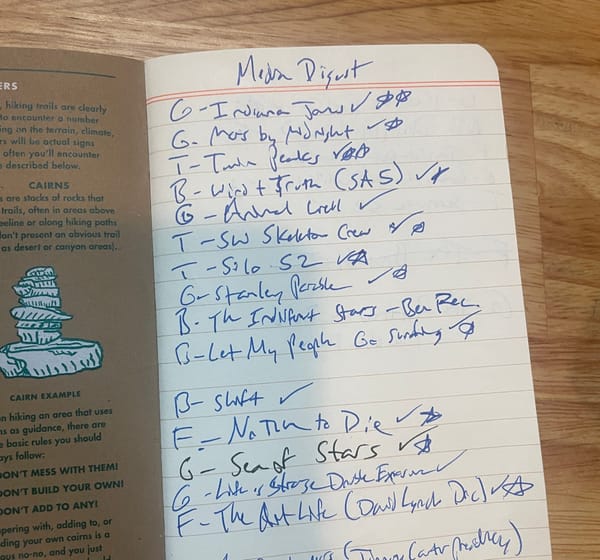 ERS
, hiking trails are clearly
to encounter a number
ing on the terrain, climate,
rs will be actual signs
often you'll encounter
e described below.
CAIRNS
s are stacks of rocks that
trails, often in areas above
eeline or along hiking paths
don't present an obvious trail
as desert or canyon areas).
CAIRN EXAMPLE
n hiking an area that uses
ns as guidance, there are
e basic rules you should
ays follow:
DON'T MESS WITH THEM!
DON'T BUILD YOUR OWN!
DON'T ADD TO ANY!
pering with, adding to, or
ding your own cairns is a
us no-no, and you just
Media Digest
G - Indiana Jones ✓ ☆☆
G - Mars by Midnight ✓ ☆
T - Twin Peaks ✓☆☆
B - Wind + Truth (SA5) ✓ ☆
G - Animal Well ✓
T - SW Skeleton Crew ✓ ☆
T - Silo S2 ✓☆
G - Stanley Parable ✓ ☆
B - The Indifferent Stars - Ben
B - Let My People Go Surfing ✓ ☆
B - Shift ✓
F - No Time to Die ✓ ☆
G - Sea of Stars ✓☆
G - Life is Strange Double Exposure ✓
F - The Art Life (David Lynch Doc) ✓☆
(Jimmy Carter